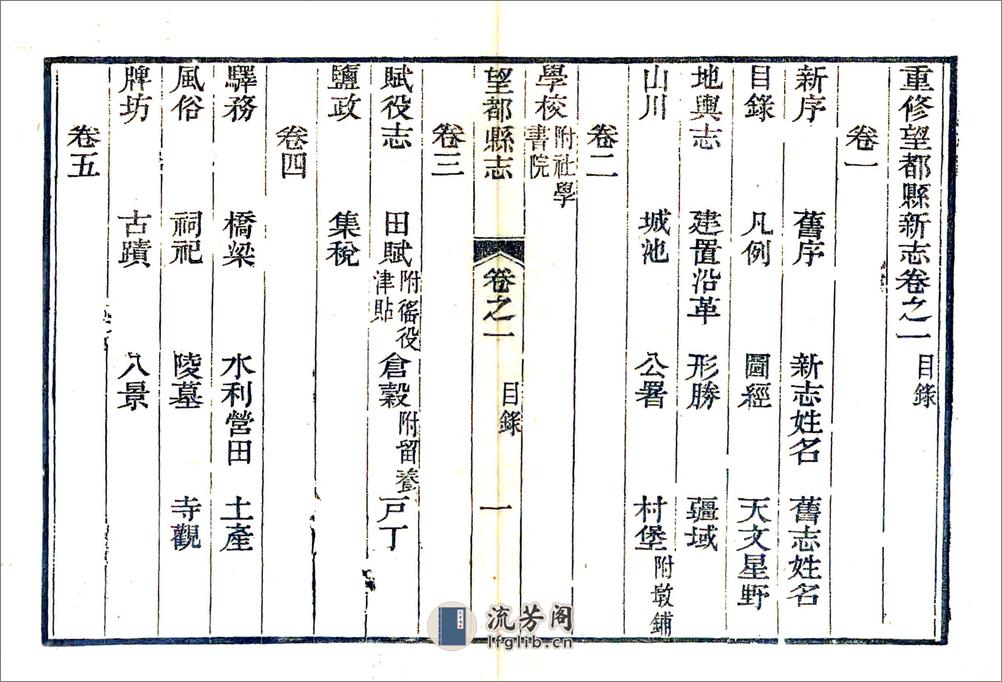 重修望都縣新志卷之一 目錄
卷一
新序 舊序 新志姓名 舊志姓名
目錄 凡例 圖經 天文星野
地輿志 建置沿革 形勝 疆域
山川 城池 公署 村堡附墩鋪
卷二
學校附社學書院
望都縣志 卷之一 目錄 一
卷三
賦役志 田賦附徭役津貼 倉穀附留養 戸丁
鹽政 集稅
卷四
驛務 橋梁 水利營田 土產
風俗 祠祀 陵墓 寺觀
牌坊 古蹟 八景
卷五
流芳阁
lfglib.cn